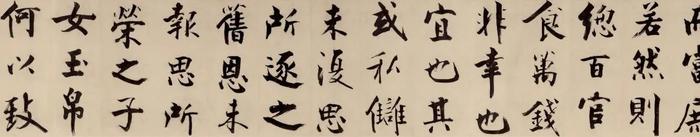 而富庶
若然則
總百官
食萬錢
非幸也
宜也其
或私讎
未復思
所逐之
舊恩未
報思所
榮之子
女玉帛
何以致